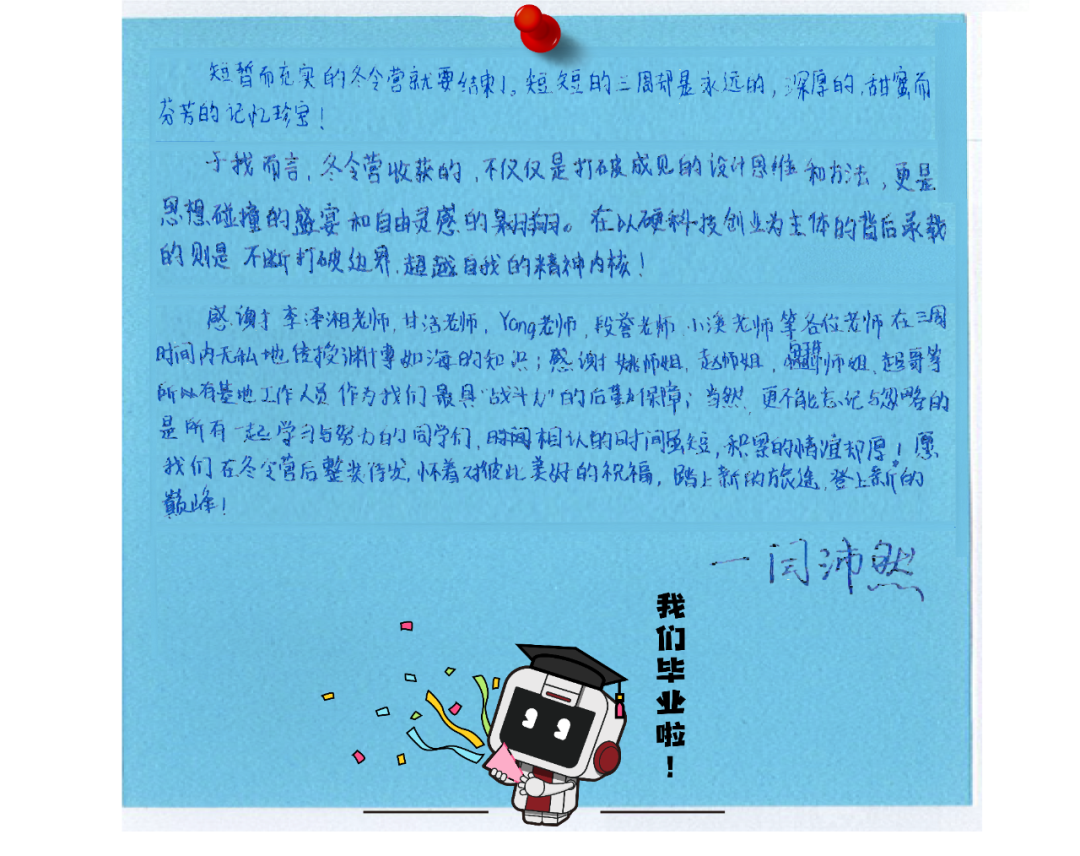 短暂而充实的冬令营就要结束了。短短的三周却是永远的,深厚的,甜蜜而
芬芳的记忆珍宝!
于我而言,冬令营收获的,不仅仅是打破成见的设计思维和方法,更是
思想碰撞的盛宴和自由灵感的翱翔。在以硬科技创业为主体的背后承载
的则是不断打破边界,超越自我的精神内核!
感谢李泽湘老师,甘洁老师,Yang老师,段誉老师,小溪老师等各位老师在三周
时间内无私地传授渊博如海的知识;感谢姚师姐,赵师姐,师姐,超哥等
所以有基地工作人员作为我们最具"战斗力"的后勤保障;当然,更不能忘记与忽略的
是所有一起学习与努力的同学们,时间相认的时间虽短,积累的情谊却厚!愿
我们在冬令营后整装待发,怀着对彼此美好的祝福,踏上新的旅途,登上新的
巅峰!
—闫沛然
我们毕业啦!